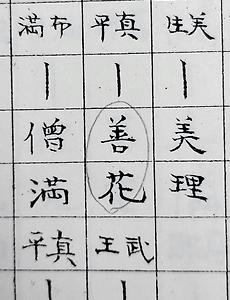 美
美理
真平
善花
武王
布満
僧満
真平